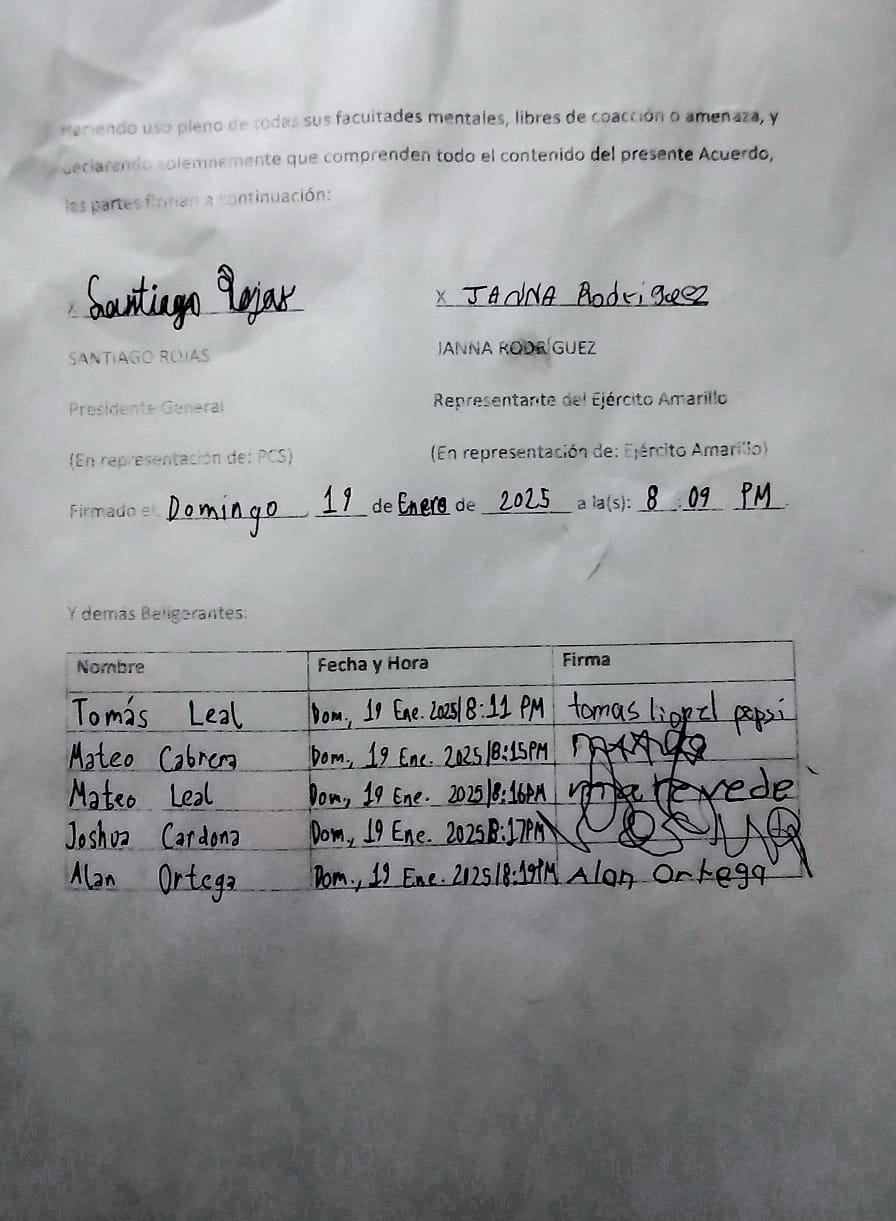 Haciendo uso pleno de todas sus facultades mentales, libres de coacción o amenaza, y
declarando solemnemente que comprenden todo el contenido del presente Acuerdo,
las partes firman a continuación:
x Santiago Rojas
x JANNA Rodriguez
SANTIAGO ROJAS
JANNA RODRÍGUEZ
Presidente General
Representante del Ejército Amarillo
(En representación de: PCS)
(En representación de: Ejército Amarillo)
Firmado el: Domingo, 19 de Enero de 2025 a la(s): 8:09 PM.
Y demás Beligerantes:
Nombre Fecha y Hora Firma
Tomás Leal Dom., 19 Ene. 2025/8:11 PM tomas lionel pepsi
Mateo Cabrera Dom., 19 Ene. 2025/8:15PM
Mateo Leal Dom., 19 Ene. 2025/8:16PM
Joshua Cardona Dom., 19 Ene. 2025/8:17PM
Alan Ortega Dom., 19 Ene. 2025/8:19PM Alan Ortega